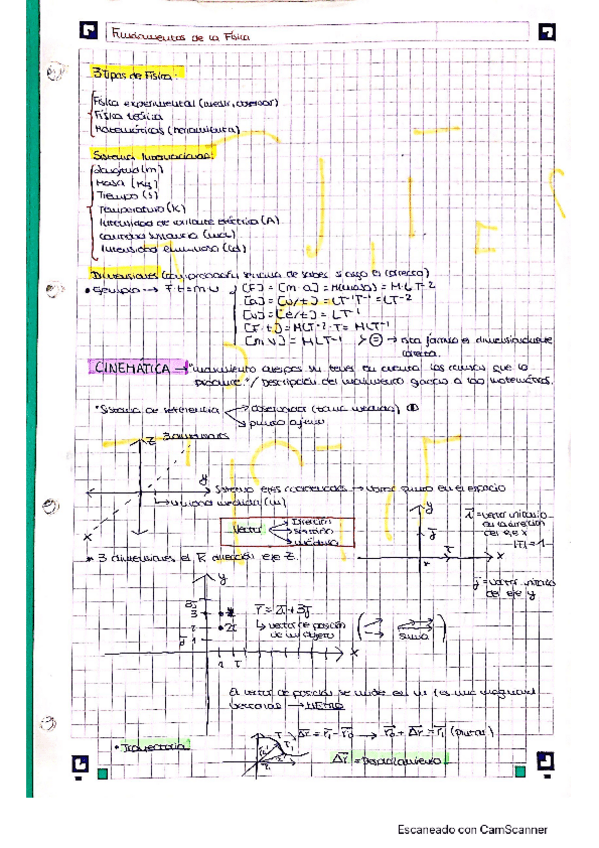 Fundamentos de la Física
3 tipos de Física:
Física experimental (medir, observar)
Física teórica
Matemáticas (herramienta)
Sistema Internacional:
Longitud (m)
Masa (Kg)
Tiempo (s)
Temperatura (K)
Intensidad de corriente eléctrica (A)
Cantidad sustancia (mol)
Intensidad luminosa (cd)
Dimensiones (comprobación, de saber si algo es correcto)
• Ejemplo → F·t = m·v
[F] = [m·a] = M(masa) = M·L·T-2
[a] = [v/t] = LT-1T-1 = LT-2
[v] = [e/t] = LT-1
[F·t] = MLT-2·T = MLT-1
[m·v] = MLT-1
→ esta fórmula es dimensionalmente
correcta.
CINEMÁTICA → "movimiento cuerpos sin tener en cuenta las causas que lo
produce." / Descripción del movimiento gracias a las matemáticas.
• Sistema de referencia
observador (toma medidas)
punto fijo
z 3 dimensiones
y
x
Sistema ejes coordenadas → vector punto en el espacio
unidad medida (m)
Vector
Dirección
Sentido
módulo
y
x
i = vector unitario
en la dirección
del eje x
|i| = 1
j = vector unitario
del eje y
* 3 dimensiones, el k dirección eje z.
y
x
r = 2i + 3j
↳ vector de posición
de un objeto
suma
El vector de posición se mide en m
→ METRO
• Trayectoria
Δr = r1 - r0 → r0 + Δr = r1
Δr = Desplazamiento
Escaneado con CamScanner